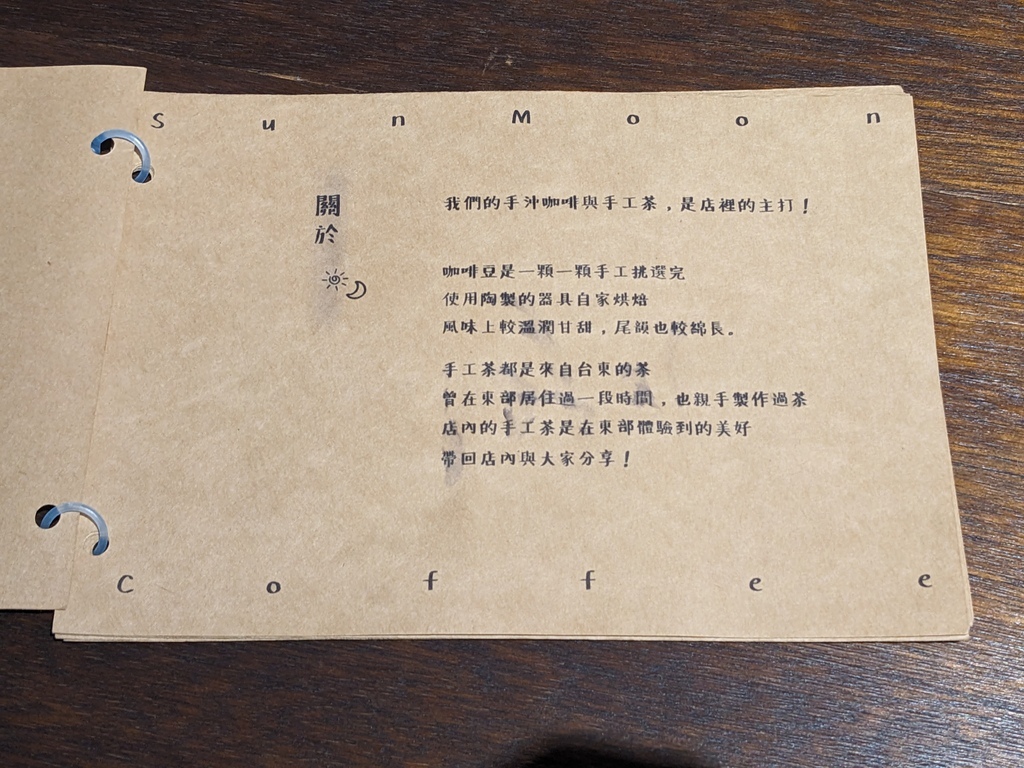 Sun Moon
關於
我們的手沖咖啡與手工茶，是店裡的主打！
咖啡豆是一顆一顆手工挑選完
使用陶製的器具自家烘焙
風味上較溫潤甘甜，尾韻也較綿長。
手工茶都是來自台東的茶
曾在東部居住過一段時間，也親手製作過茶
店內的手工茶是在東部體驗到的美好
帶回店內與大家分享！
Coffee